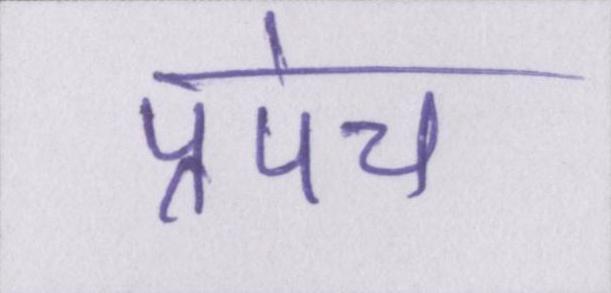 प्रपेच